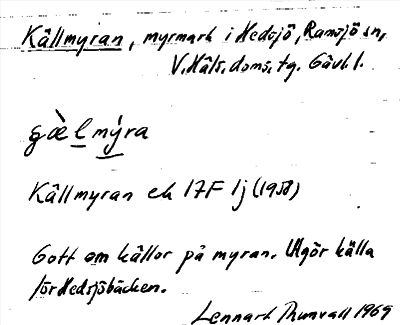 Källmyran, myrmark i Hedsjö, Ramsjö sn,
V. Häls. doms. tg. Gävl. l.
gæ̀l mýra
Källmyran ek 17F 1j (1958)
Gott om källor på myran. Utgör källa
för Hedsjöbäcken.
Lennart Thunvall 1969